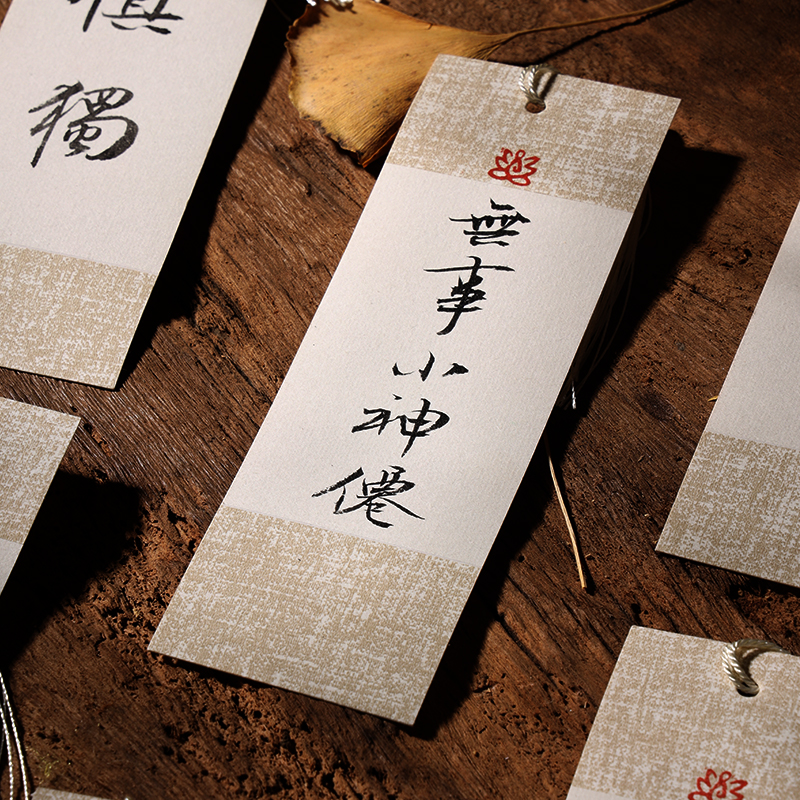 慎獨
無事小神僊